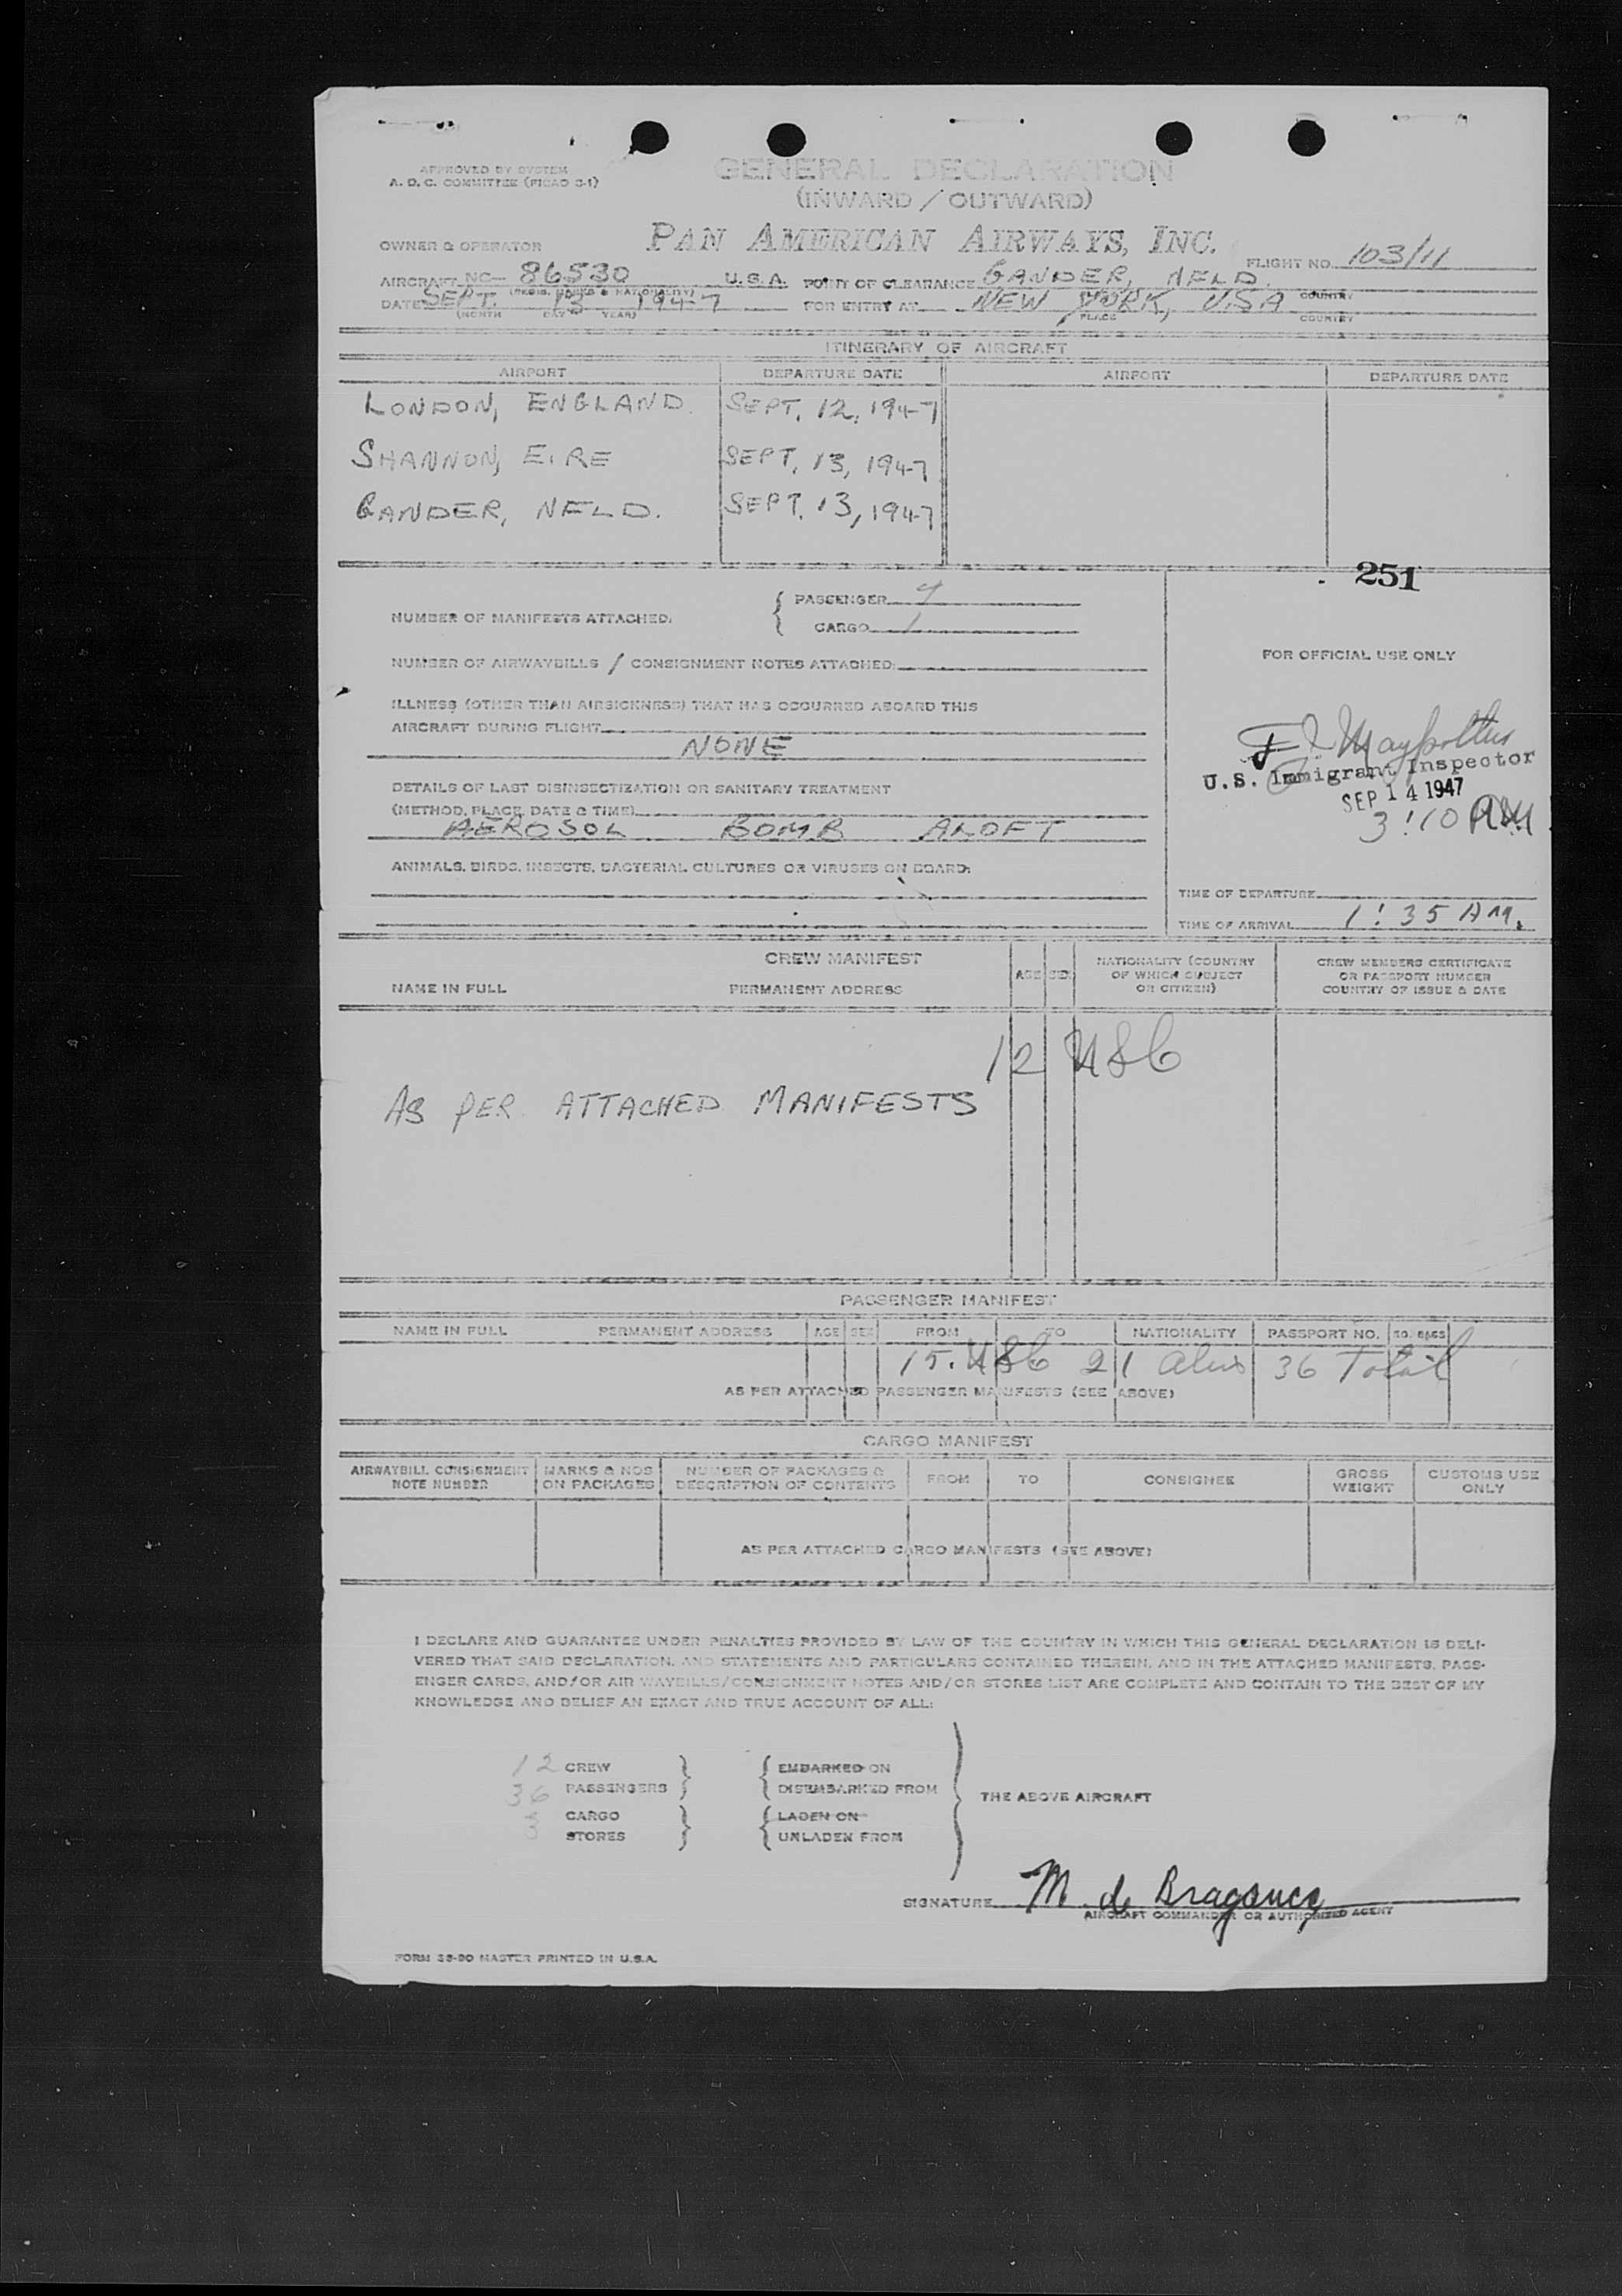 APPROVED BY SYSTEM
A. D. C. COMMITTEE (PICAO C-1)
GENERAL DECLARATION
(INWARD / OUTWARD)
OWNER & OPERATOR PAN AMERICAN AIRWAYS, INC. FLIGHT NO. 103/11
AIRCRAFT NC- 86530 U.S.A. POINT OF CLEARANCE GANDER, NFLD.
(REGIS. MARKS & NATIONALITY) COUNTRY
DATE SEPT. 13 1947 FOR ENTRY AT NEW YORK, USA
(MONTH DAY YEAR) PLACE COUNTRY
ITINERARY OF AIRCRAFT
AIRPORT DEPARTURE DATE AIRPORT DEPARTURE DATE
LONDON, ENGLAND. SEPT. 12, 1947
SHANNON, EIRE SEPT. 13, 1947
GANDER, NFLD. SEPT. 13, 1947
251
NUMBER OF MANIFESTS ATTACHED:
PASSENGER
CARGO 1
NUMBER OF AIRWAYBILLS / CONSIGNMENT NOTES ATTACHED:
FOR OFFICIAL USE ONLY
ILLNESS (OTHER THAN AIRSICKNESS) THAT HAS OCCURRED ABOARD THIS
AIRCRAFT DURING FLIGHT
NONE
U.S. Immigrant Inspector
SEP 14 1947
3:10 AM
DETAILS OF LAST DISINSECTIZATION OR SANITARY TREATMENT
(METHOD, PLACE, DATE & TIME)
AEROSOL BOMB ALOFT
ANIMALS, BIRDS, INSECTS, BACTERIAL CULTURES OR VIRUSES ON BOARD:
TIME OF DEPARTURE
TIME OF ARRIVAL 1:35 AM.
CREW MANIFEST
NAME IN FULL PERMANENT ADDRESS AGE SEX NATIONALITY (COUNTRY OF WHICH SUBJECT OR CITIZEN) CREW MEMBERS CERTIFICATE OR PASSPORT NUMBER COUNTRY OF ISSUE & DATE
12 USC
AS PER ATTACHED MANIFESTS
PASSENGER MANIFEST
NAME IN FULL PERMANENT ADDRESS AGE SEX FROM TO NATIONALITY PASSPORT NO. NO. BAGS
15 USC 21 alns 36 Total
AS PER ATTACHED PASSENGER MANIFESTS (SEE ABOVE)
CARGO MANIFEST
AIRWAYBILL CONSIGNMENT NOTE NUMBER MARKS & NOS ON PACKAGES NUMBER OF PACKAGES & DESCRIPTION OF CONTENTS FROM TO CONSIGNEE GROSS WEIGHT CUSTOMS USE ONLY
AS PER ATTACHED CARGO MANIFESTS (SEE ABOVE)
I DECLARE AND GUARANTEE UNDER PENALTIES PROVIDED BY LAW OF THE COUNTRY IN WHICH THIS GENERAL DECLARATION IS DELI-
VERED THAT SAID DECLARATION, AND STATEMENTS AND PARTICULARS CONTAINED THEREIN, AND IN THE ATTACHED MANIFESTS, PASS-
ENGER CARDS, AND/OR AIR WAYBILLS/CONSIGNMENT NOTES AND/OR STORES LIST ARE COMPLETE AND CONTAIN TO THE BEST OF MY
KNOWLEDGE AND BELIEF AN EXACT AND TRUE ACCOUNT OF ALL:
12 CREW EMBARKED ON
36 PASSENGERS DISEMBARKED FROM
THE ABOVE AIRCRAFT
3 CARGO LADEN ON
STORES UNLADEN FROM
SIGNATURE M. de Bragança
AIRCRAFT COMMANDER OR AUTHORIZED AGENT
FORM 38-90 MASTER PRINTED IN U.S.A.